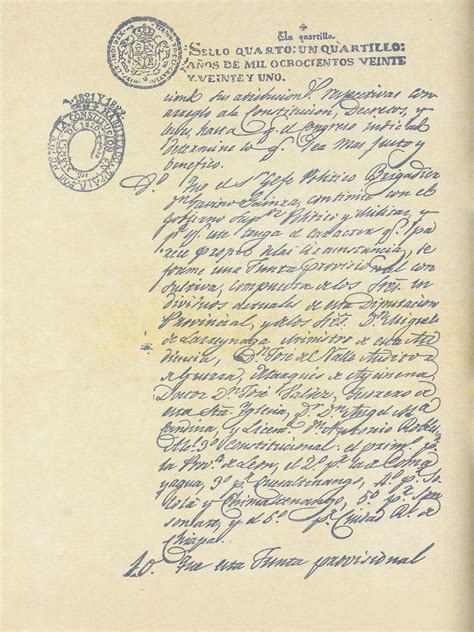 Un quartillo.
SELLO QUARTO: UN QUARTILLO:
AÑOS DE MIL OCHOCIENTOS VEINTE
Y VEINTE Y UNO.
1821 Y 1822
ciend sus atribucion.s respectivas con
arreglo ala Constitucion, Decretos, y
Leyes, hasta q.e el Congreso indicado
determine lo q.e sea mas justo y
benefico.
9.o Que el S.or Gefe Politico Brigadier
Gavino Gainza, continúe con el
Gobierno Sup.or Politico y Militar, y
p.a q.e este tenga el caracter q.e pa-
rece propio delas circunstancias, se
forme una Junta provisional con-
sultiva, compuesta delos Sres. in-
dividuos actuales de esta Diputacion
Provincial, y delos Sres. D.n Miguel
de Larreynaga Ministro de esta Au-
diencia, D.n José del Valle Auditor
de Guerra, Marques de Aycinena
Doctor D.n José Valdez, Tesorero de
esta Sta. Iglesia, D.r D.n Angel Ma.
Candina, y Licen.do D.n Antonio Robles
Alc.e 3.o Constitucional: el primero p.r
la Prov.a de Leon, el 2.o p.r la de Coma-
yagua, 3.o p.r Quesaltenango, 4.o p.r So-
lolá y Chimaltenango, 5.o p.r Son-
sonate, y el 6.o p.r Ciudad R.l de
Chiapa.
10.o Que esta Junta provisional